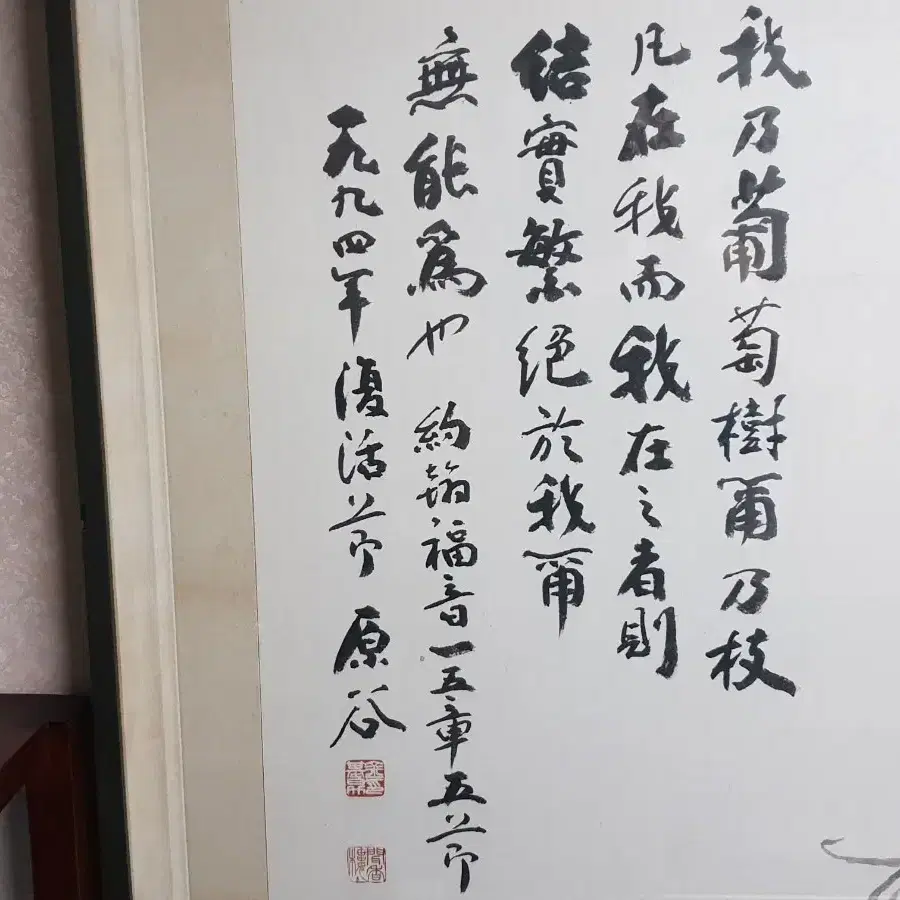 我乃葡萄樹爾乃枝
凡在我而我在之者則
結實繁絕於我爾
無能爲也 約翰福音一五章五節
一九九四年復活節 原谷